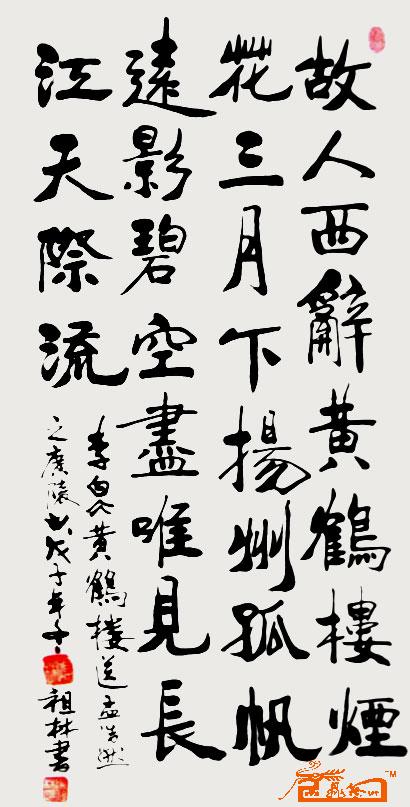 故人西辭黃鶴樓煙
花三月下揚州孤帆
遠影碧空盡唯見長
江天際流
李白黃鶴樓送孟浩然
之廣陵 戊子年
祖林書